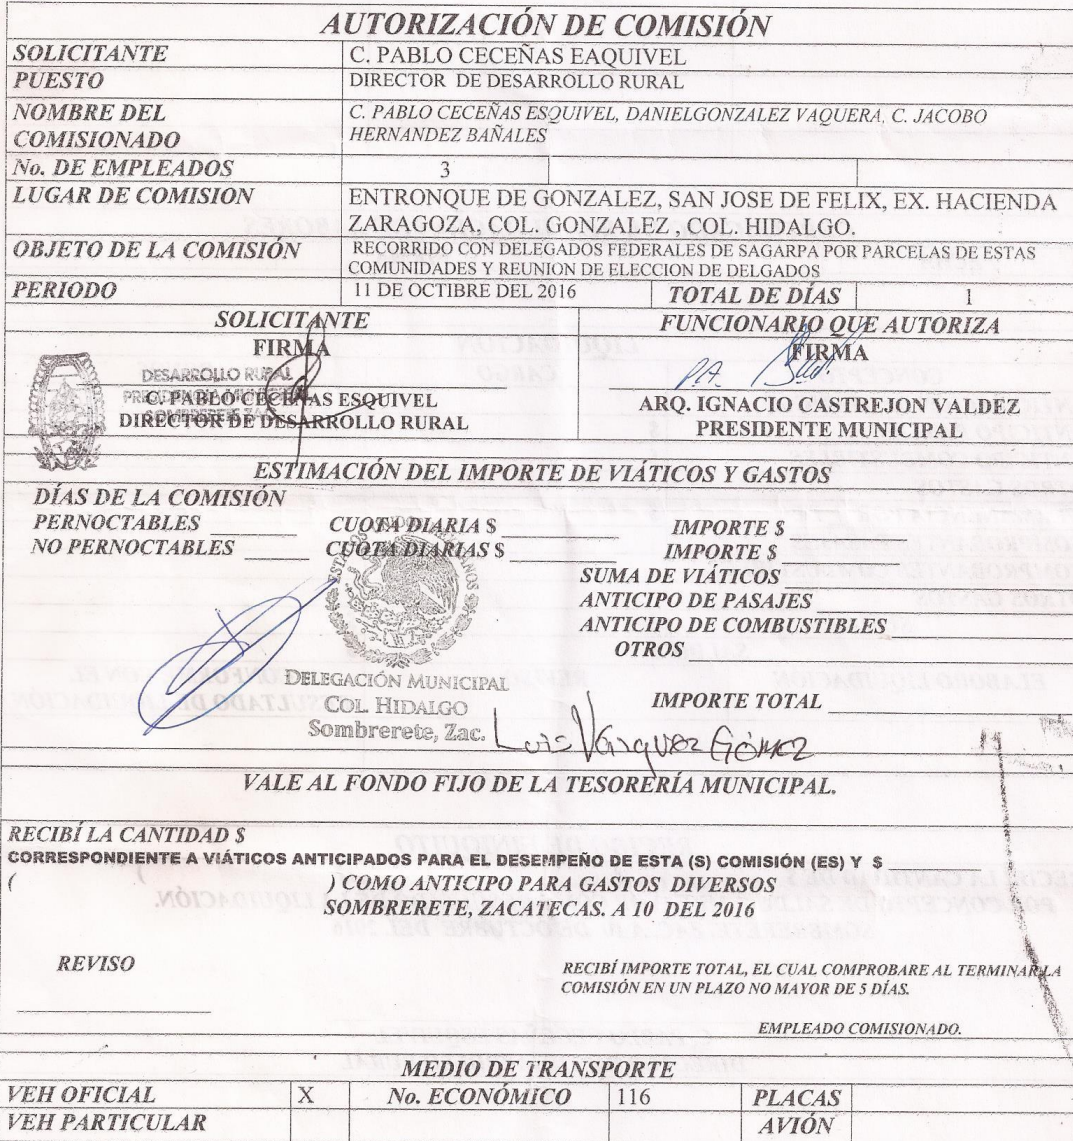 AUTORIZACIÓN DE COMISIÓN
SOLICITANTE C. PABLO CECEÑAS EAQUIVEL
PUESTO DIRECTOR DE DESARROLLO RURAL
NOMBRE DEL COMISIONADO C. PABLO CECEÑAS ESQUIVEL, DANIELGONZALEZ VAQUERA, C. JACOBO
HERNANDEZ BAÑALES
No. DE EMPLEADOS 3
LUGAR DE COMISION ENTRONQUE DE GONZALEZ, SAN JOSE DE FELIX, EX. HACIENDA
ZARAGOZA, COL. GONZALEZ , COL. HIDALGO.
OBJETO DE LA COMISIÓN RECORRIDO CON DELEGADOS FEDERALES DE SAGARPA POR PARCELAS DE ESTAS
COMUNIDADES Y REUNION DE ELECCION DE DELGADOS
PERIODO 11 DE OCTIBRE DEL 2016 TOTAL DE DÍAS 1
SOLICITANTE FUNCIONARIO QUE AUTORIZA
FIRMA FIRMA
DESARROLLO RURAL
P.A.
C. PABLO CECEÑAS ESQUIVEL ARQ. IGNACIO CASTREJON VALDEZ
SOMBRERETE ZAC.
DIRECTOR DE DESARROLLO RURAL PRESIDENTE MUNICIPAL
ESTIMACIÓN DEL IMPORTE DE VIÁTICOS Y GASTOS
DÍAS DE LA COMISIÓN
PERNOCTABLES CUOTA DIARIA $ IMPORTE $
NO PERNOCTABLES CUOTA DIARIAS $ IMPORTE $
SUMA DE VIÁTICOS
ANTICIPO DE PASAJES
ANTICIPO DE COMBUSTIBLES
OTROS
DELEGACIÓN MUNICIPAL
COL. HIDALGO
Sombrerete, Zac.
IMPORTE TOTAL
Luis Vazquez Gómez
VALE AL FONDO FIJO DE LA TESORERÍA MUNICIPAL.
RECIBÍ LA CANTIDAD $
CORRESPONDIENTE A VIÁTICOS ANTICIPADOS PARA EL DESEMPEÑO DE ESTA (S) COMISIÓN (ES) Y $
( ) COMO ANTICIPO PARA GASTOS DIVERSOS
SOMBRERETE, ZACATECAS. A 10 DEL 2016
REVISO
RECIBÍ IMPORTE TOTAL, EL CUAL COMPROBARE AL TERMINAR LA
COMISIÓN EN UN PLAZO NO MAYOR DE 5 DÍAS.
EMPLEADO COMISIONADO.
MEDIO DE TRANSPORTE
VEH OFICIAL X No. ECONÓMICO 116 PLACAS
VEH PARTICULAR AVIÓN